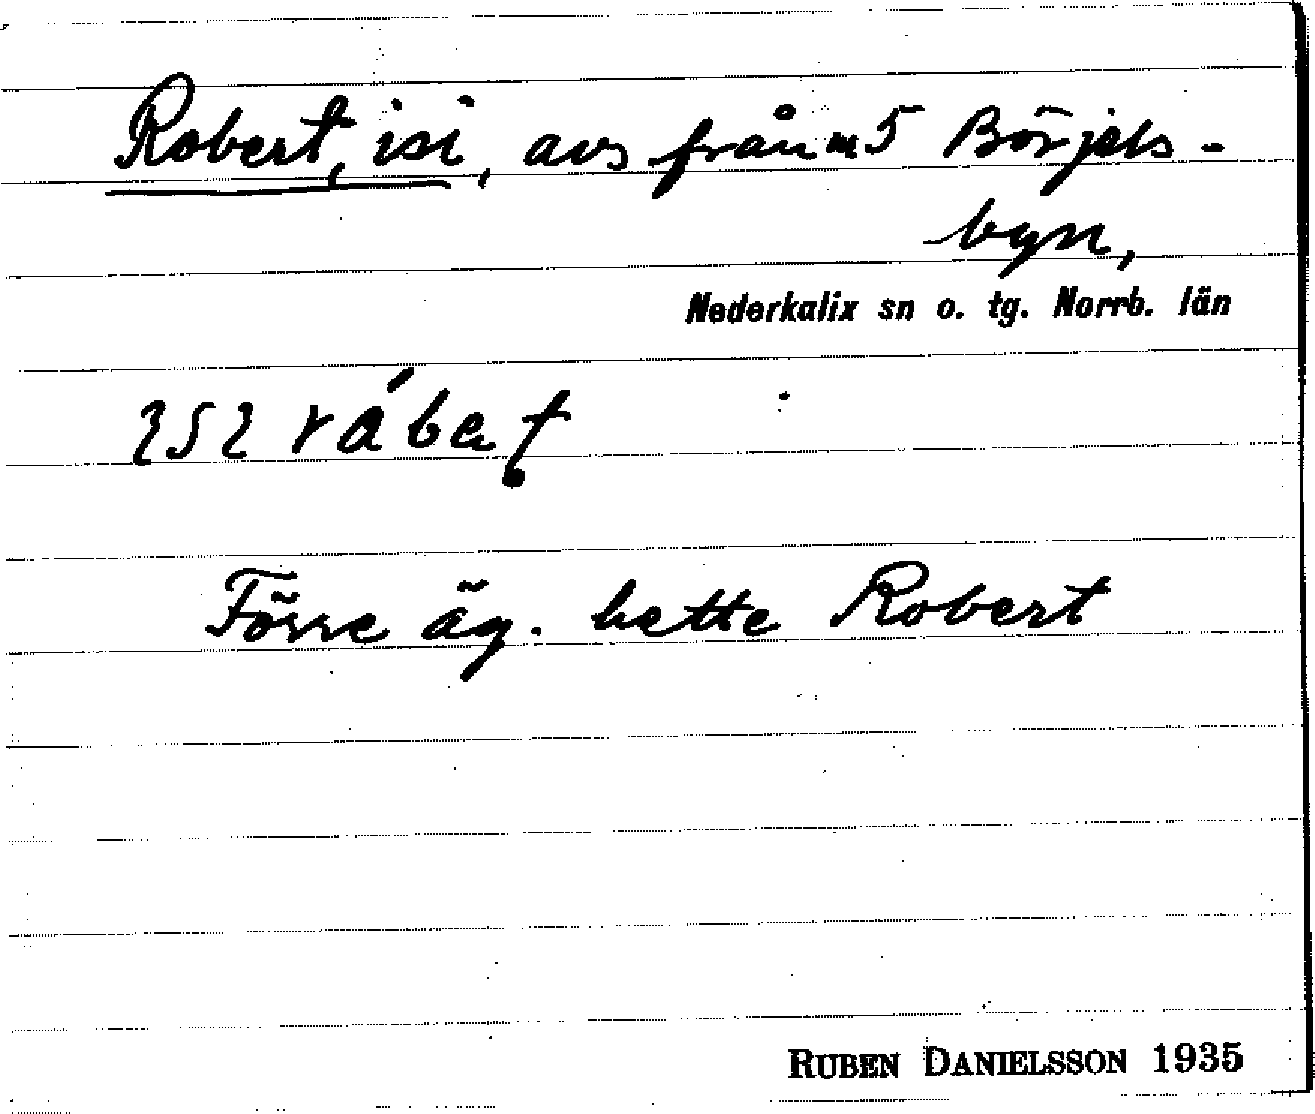 Robert, isi, avs från m5 Börjels-
byn,
Nederkalix sn o. tg. Norrb. län
Förre äg. hette Robert
RUBEN DANIELSSON 1935